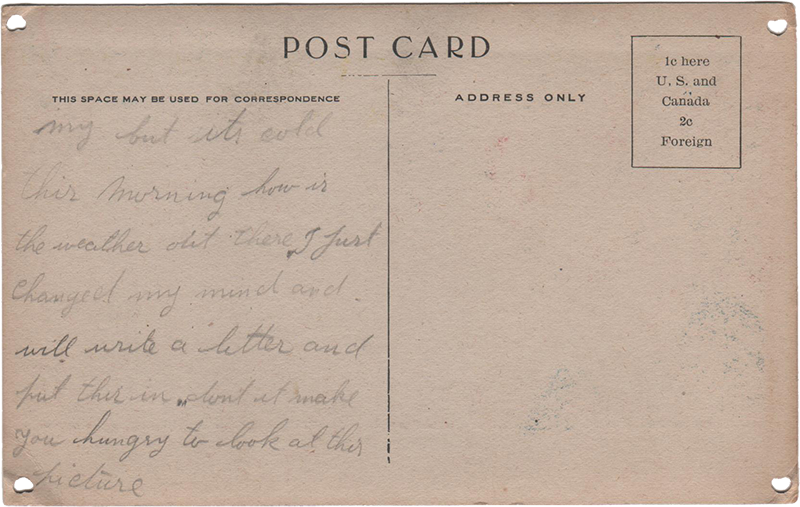 POST CARD
THIS SPACE MAY BE USED FOR CORRESPONDENCE
ADDRESS ONLY
1c here
U. S. and
Canada
2c
Foreign
my but its cold
this morning how is
the weather out there, I just
changed my mind and
will write a letter and
put this in, dont it make
you hungry to look at this
picture